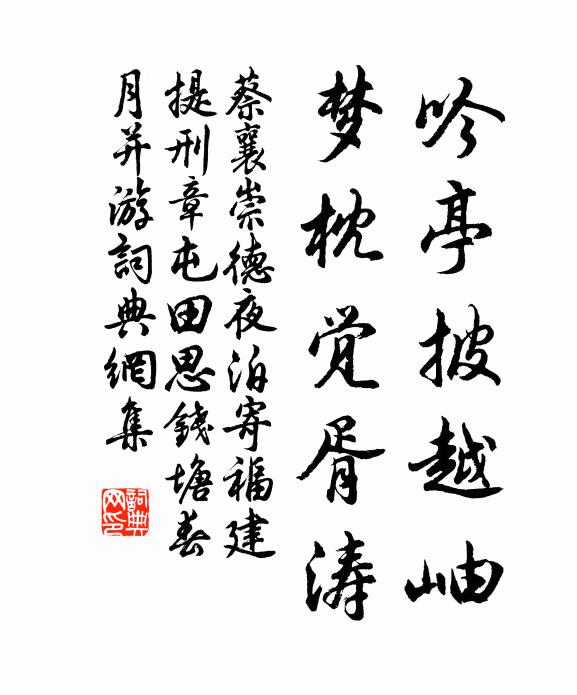 吟亭披越岫
梦枕觉胥涛
蔡襄崇德夜泊寄福建
提刑章屯田思錢塘春
月并游詞典網集
詞典網印